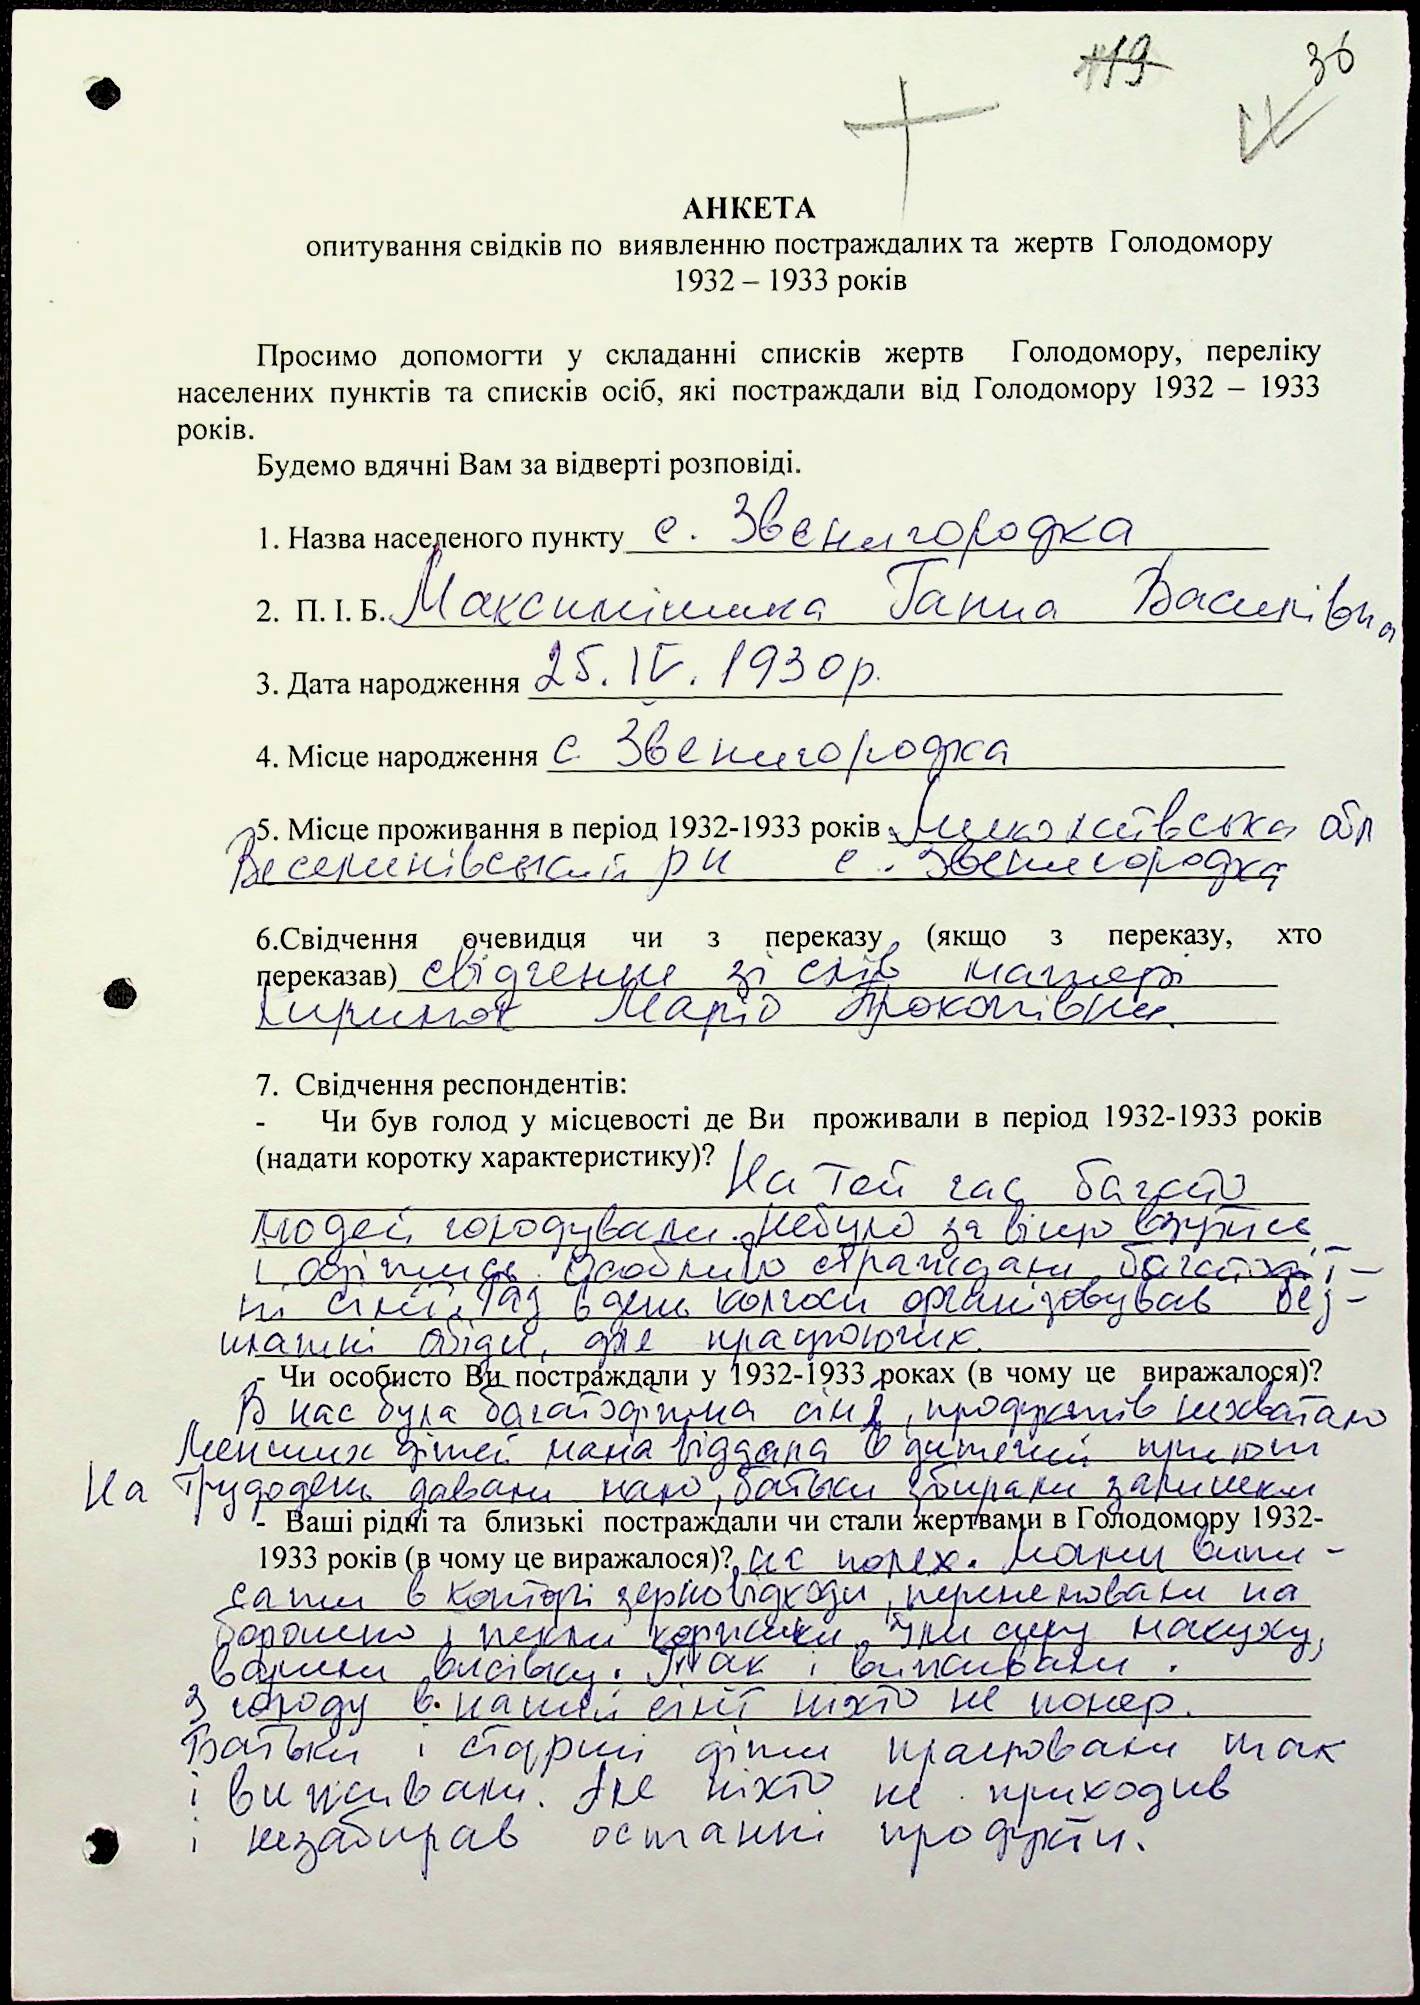 119
36
АНКЕТА
опитування свідків по виявленню постраждалих та жертв Голодомору
1932 – 1933 років
Просимо допомогти у складанні списків жертв Голодомору, переліку
населених пунктів та списків осіб, які постраждали від Голодомору 1932 – 1933
років.
Будемо вдячні Вам за відверті розповіді.
1. Назва населеного пункту с. Звенигородка
2. П. І. Б. Ганна Василівна
3. Дата народження 25.IV.1930р.
4. Місце народження с. Звенигородка
5. Місце проживання в період 1932-1933 років Миколаївська обл
Веселинівський рн с. Звенигородка
6.Свідчення очевидця чи з переказу (якщо з переказу, хто
переказав) свідчення зі слів матері
Марію Прокопівни.
7. Свідчення респондентів:
- Чи був голод у місцевості де Ви проживали в період 1932-1933 років
(надати коротку характеристику)? На той час багато
людей голодували. Небуло за віщо взутись
і одітись. Особливо страждали багатоді-
тні сімї. Раз в день колгосп організовував без-
платні обіди, для працюючих.
- Чи особисто Ви постраждали у 1932-1933 роках (в чому це виражалося)?
В нас була багатодітна сімя, продуктів нехватало
Менших дітей мама віддала в дитячий приют
На трудодень давали мало, батьки збирали залишки
- Ваші рідні та близькі постраждали чи стали жертвами в Голодомору 1932-
1933 років (в чому це виражалося)? на полях. Мами випи-
сали в конторі зерновідходи, перемелювали на
борошно і пекли коржики. Їли суху макуху,
варили висівку. Так і виживали.
З голоду в нашій сімї ніхто не помер.
Батьки і старші діти працювали так
і виживали. Але ніхто не приходив
і незабирав останні продукти.